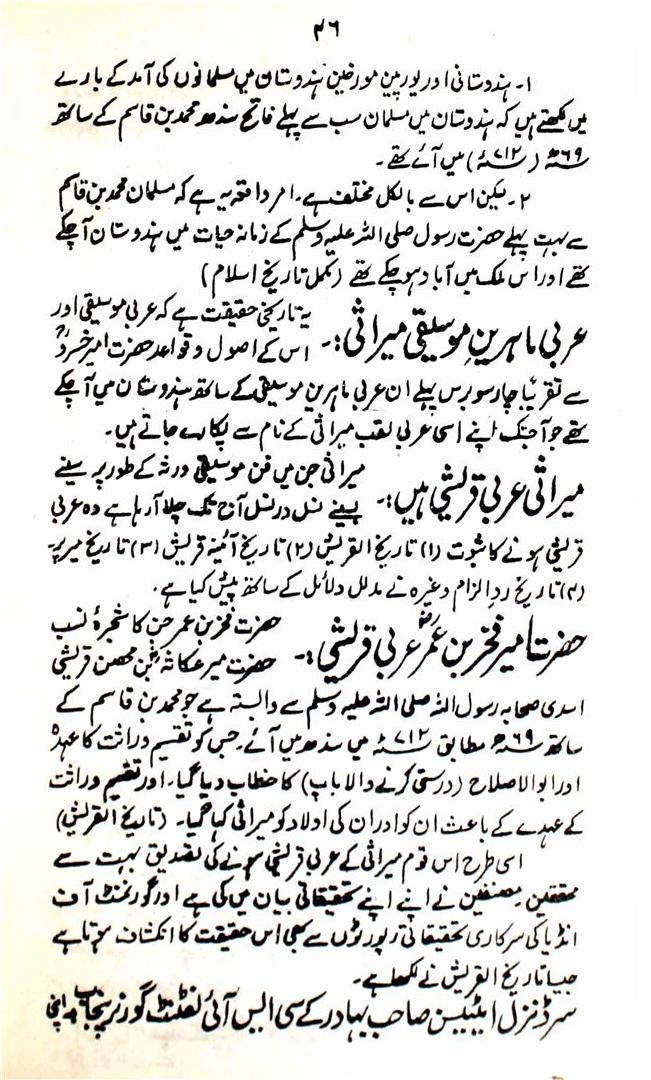 ۴۶
۱۔ ہندوستانی اور یورپین مورخین ہندوستان میں مسلمانوں کی آمد کے بارے
میں لکھتے ہیں کہ ہندوستان میں مسلمان سب سے پہلے فاتح سندھ محمد بن قاسم کے ساتھ
۶۹ھ (۷۱۲ء) میں آئے تھے۔
۲۔ لیکن اس سے بالکل مختلف ہے۔ امر واقعہ یہ ہے کہ مسلمان محمد بن قاسم
سے بہت پہلے حضرت رسول صلی اللہ علیہ وسلم کے زمانہ حیات میں ہندوستان آ چکے
تھے اور اس ملک میں آباد ہو چکے تھے (مکمل تاریخ اسلام)
عربی ماہرینِ موسیقی میراثی:۔ یہ تاریخی حقیقت ہے کہ عربی موسیقی اور
اس کے اصول و قواعد حضرت امیر خسروؒ
سے تقریباً چار سو برس پہلے ان عربی ماہرین موسیقی کے ساتھ ہندوستان میں آ چکے
تھے جو آجتک اپنے اسی عربی لقب میراثی کے نام سے پکارے جاتے ہیں۔
میراثی عربی قریشی ہیں:۔ میراثی جن میں فن موسیقی ورثہ کے طور پر سینے
بسینے نسل در نسل آج تک چلا آ رہا ہے وہ عربی
قریشی ہونے کا ثبوت (۱) تاریخ القریش (۲) تاریخ آئینہ قریش (۳) تاریخ میر پر
(۴) تاریخ رد الزام وغیرہ نے مدلل دلائل کے ساتھ پیش کیا ہے۔
حضرت امیر فخر بن عمرؓ عربی قریشی:۔ حضرت فخر بن عمر جن کا شجرۂ نسب
حضرت میر عکاشہؓ بن محصن قریشی
اسدی صحابہ رسول اللہ صلی اللہ علیہ وسلم سے وابستہ ہے جو محمد بن قاسم کے
ساتھ ۶۹ھ مطابق ۷۱۲ء میں سندھ میں آئے۔ جس کو تقسیم وراثت کا عہدہ
اور ابوالاصلاح (درستی کرنے والا باپ) کا خطاب دیا گیا۔ اور تقسیم وراثت
کے عہدے کے باعث ان کو اور ان کی اولاد کو میراثی کہا گیا۔ (تاریخ القریش)
اسی طرح اس قوم میراثی کے عربی قریشی ہونے کی تصدیق بہت سے
محققین مصنفین نے اپنے اپنے تحقیقاتی بیان میں کی ہے اور گورنمنٹ آف
انڈیا کی سرکاری تحقیقاتی رپورٹوں سے بھی اس حقیقت کا انکشاف ہوتا ہے
جیسا تاریخ القریش نے لکھا ہے۔
سر ڈنزل ایبٹسن صاحب بہادر کے سی ایس آئی لفٹنٹ گورنر پنجاب اپنی